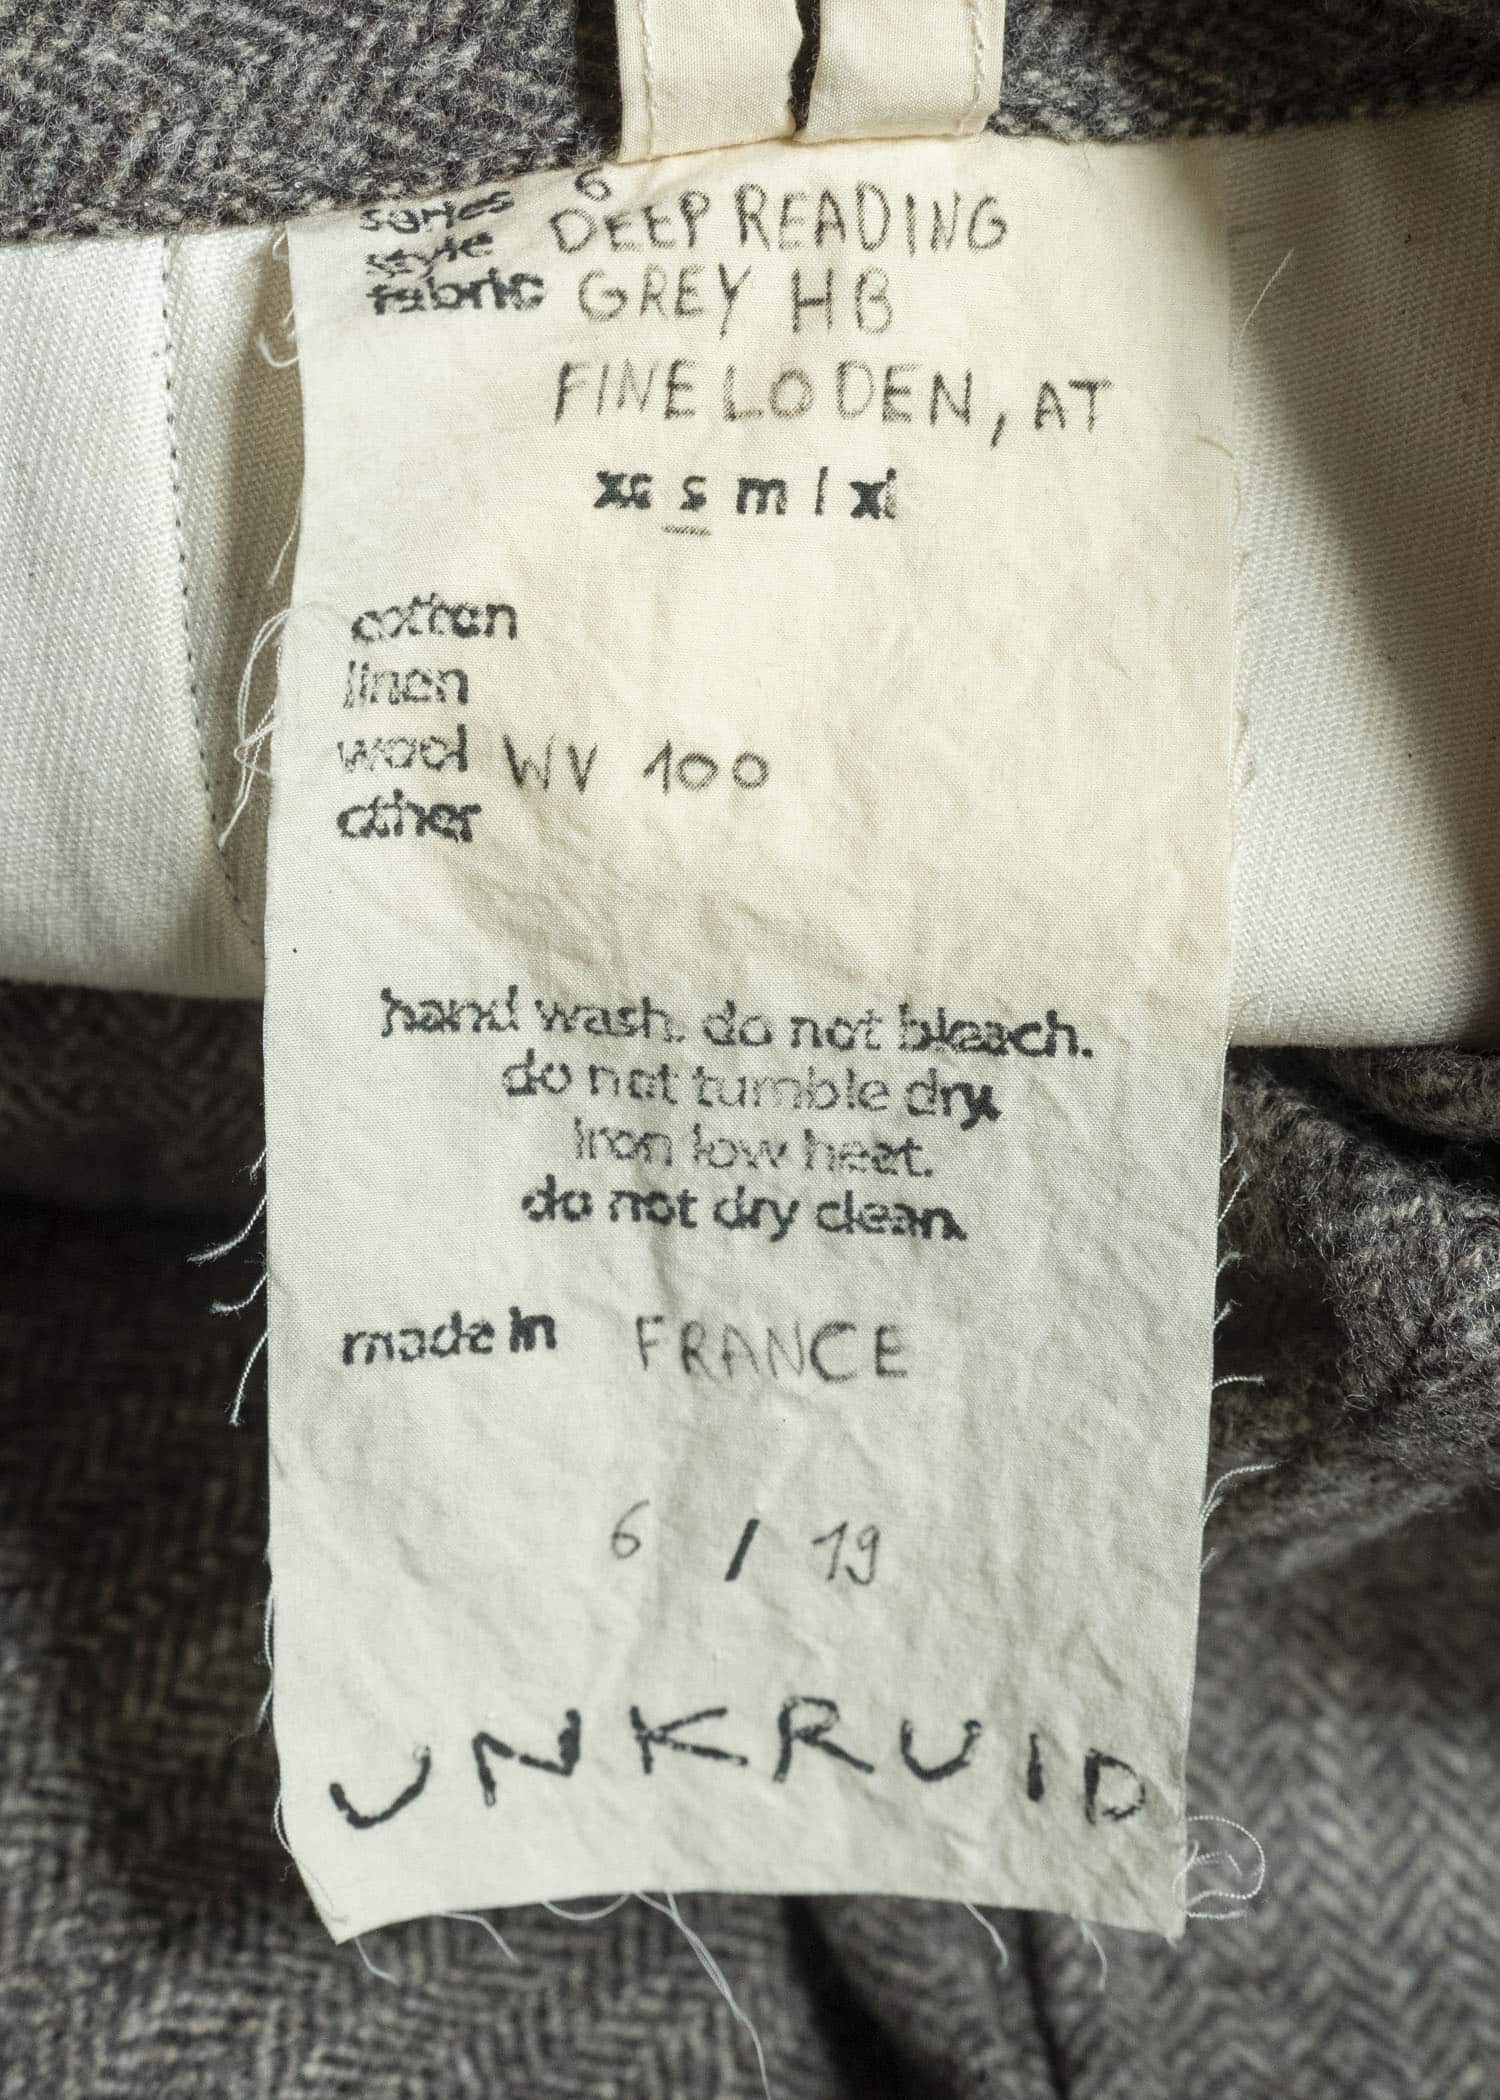 series 6
style DEEP READING
fabric GREY HB
FINE LODEN, AT
xs s m l xl
cotton
linen
wool WV 100
other
hand wash. do not bleach.
do not tumble dry.
iron low heat.
do not dry clean.
made in FRANCE
6 / 19
UNKRUID